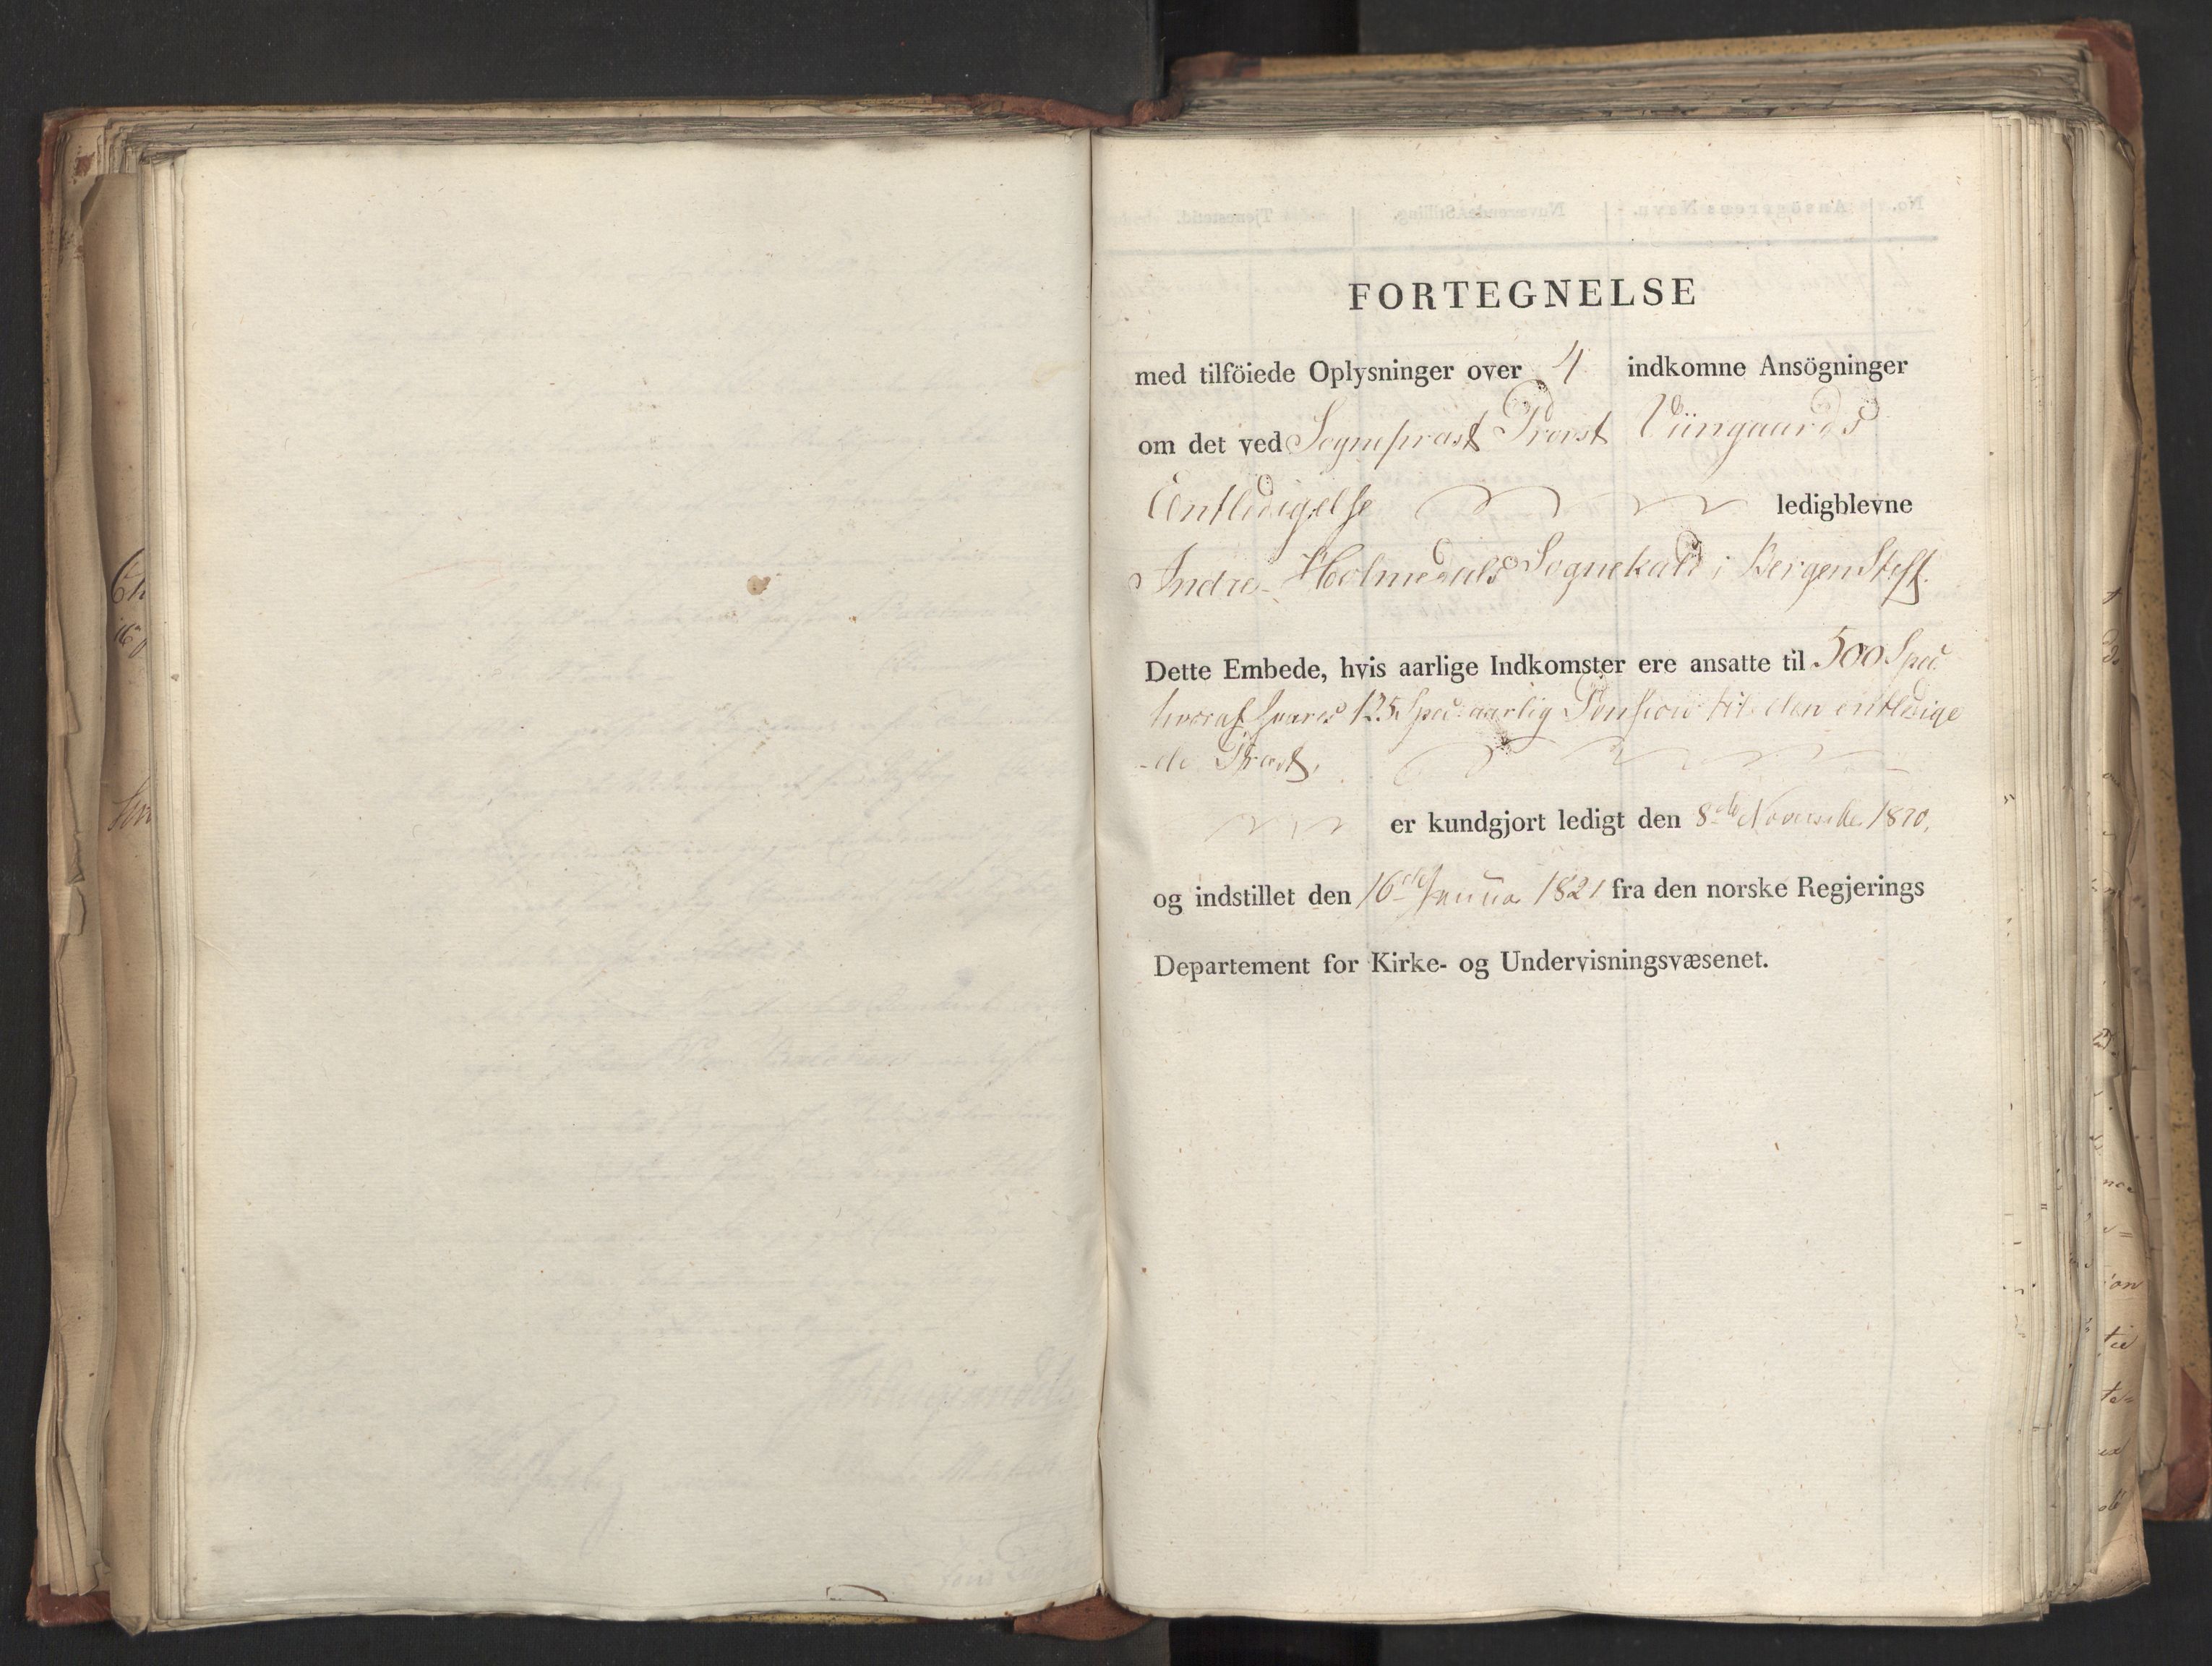 FORTEGNELSE
med tilföiede Oplysninger over 4 indkomne Ansögninger
om det ved Sognepræst Provst Viingaards
Entledigelse ledigblevne
Indre-Holmedals Sognekald i Bergens Stift.
Dette Embede, hvis aarlige Indkomster ere ansatte til 500 Spd.
hvoraf svares 125 Spd. aarlig Pension til den entledige
-de Præst,
er kundgjort ledigt den 8de November 1820,
og indstillet den 16de Januar 1821 fra den norske Regjerings
Departement for Kirke- og Undervisningsvæsenet.